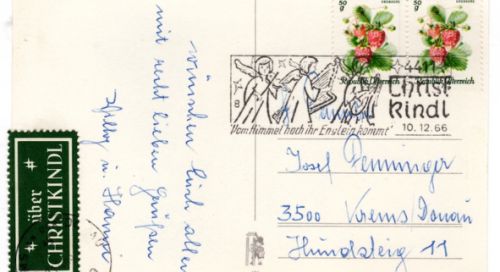 wünschen Euch allen
mit recht lieben Grüßen
über
CHRISTKINDL
50 g
50 g
ERDBEERE
Republik Österreich
Republik Österreich
4411
Christ
kindl
10.12.66
8
"Vom Himmel hoch ihr Englein kommt"
Familie
Josef Penninger
3500 Krems/Donau
Hundsteig 11